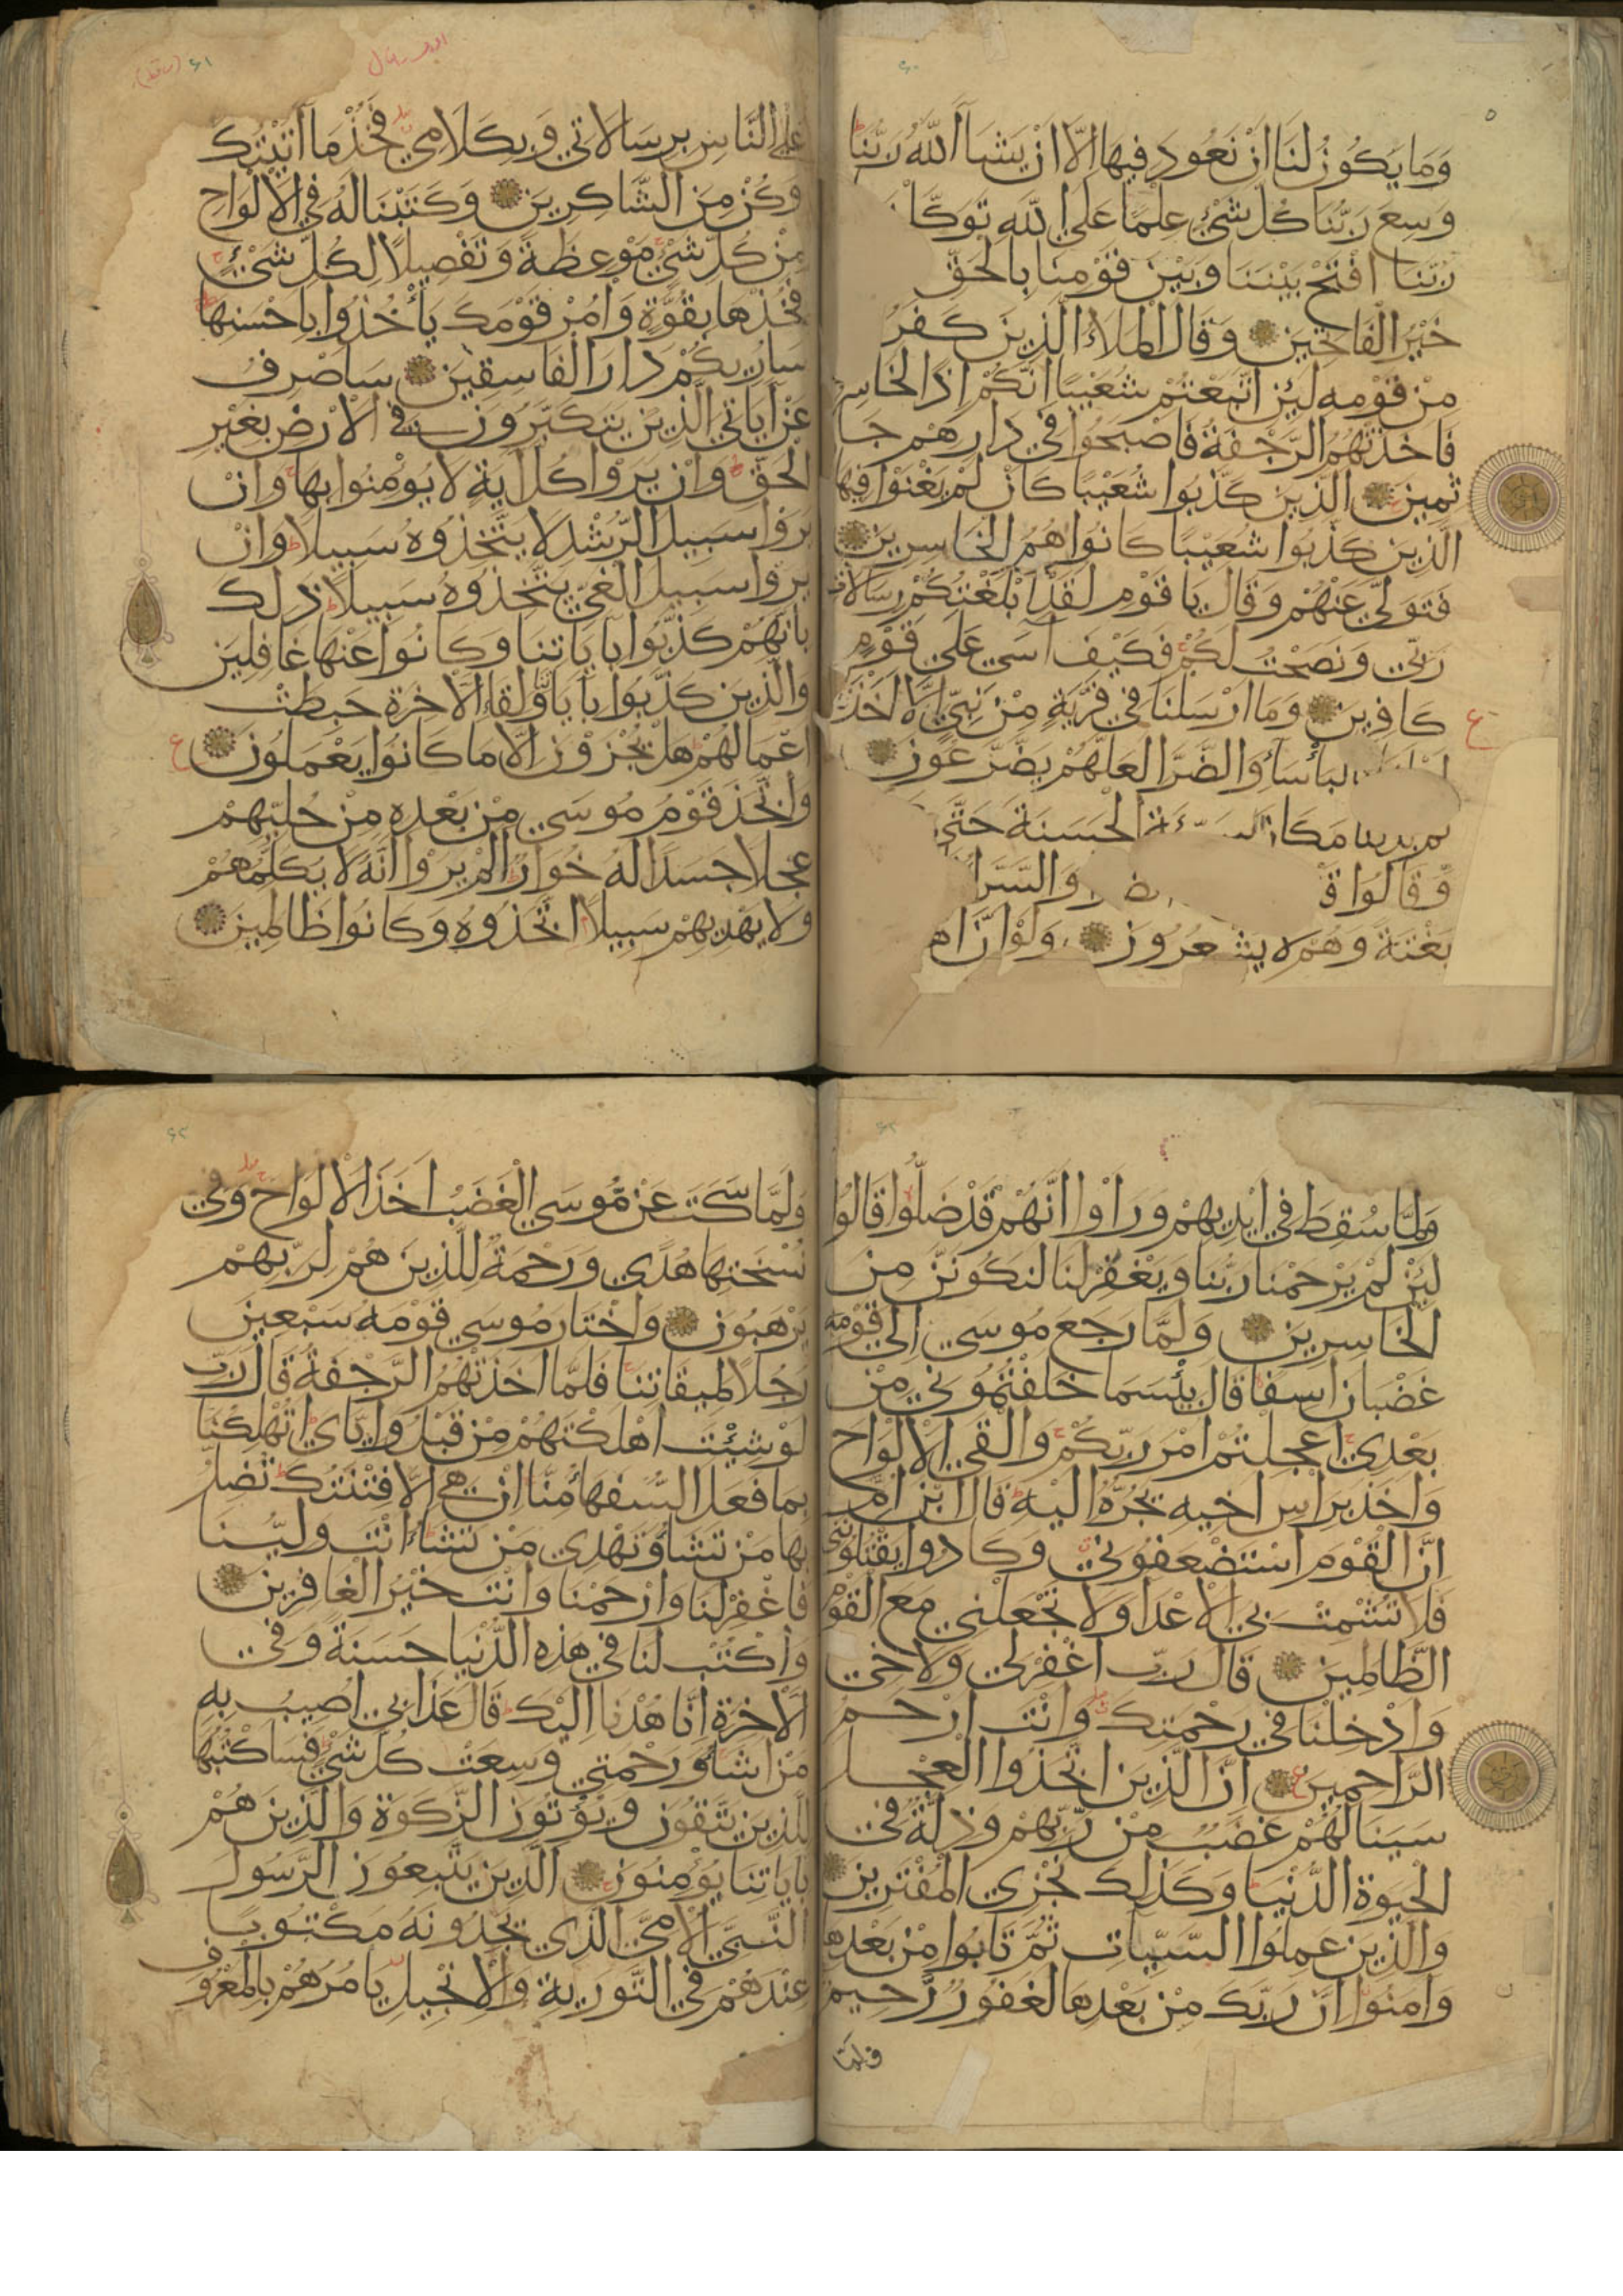 وما يكون لنا ان نعود فيها الا ان يشا الله ربنا
وسع ربنا كل شيء علما على الله
ربنا افتح بيننا وبين قومنا بالحق
خير الفاتحين وقال الملاء الذين كفر
من قومه لئن اتبعتم شعيبا انكم اذا
فاخذتهم الرجفة فاصبحوا في دارهم جا
ثمين الذين كذبوا شعيبا كان لم يغنوا فيها
الذين كذبوا شعيبا كانوا هم الخاسرين
فتولى عنهم وقال يا قوم لقد ابلغتكم رسالات
ربي ونصحت لكم فكيف آسى على قوم
كافرين وما ارسلنا في قرية من نبي الا اخذنا
والضرا لعلهم يضرعون
مكان الحسنة حتى
وقالوا والسرا
بغتة وهم لا يشعرون ولو ان
على الناس برسالاتي وبكلامي فخذ ما آتيتك
وكن من الشاكرين وكتبنا له في الالواح
من كل شيء موعظة وتفصيلا لكل شيء
فخذها بقوة وامر قومك يأخذوا باحسنها
ساريكم دار الفاسقين ساصرف
عن آياتي الذين يتكبرون في الارض بغير
الحق وان يروا كل آية لا يؤمنوا بها وان
يروا سبيل الرشد لا يتخذوه سبيلا وان
يروا سبيل الغي يتخذوه سبيلا ذلك
بانهم كذبوا بآياتنا وكانوا عنها غافلين
والذين كذبوا بآياتنا ولقا الآخرة حبطت
اعمالهم هل يجزون الا ما كانوا يعملون
واتخذ قوم موسى من بعده من حليهم
عجلا جسدا له خوار الم يروا انه لا يكلمهم
ولا يهديهم سبيلا اتخذوه وكانوا ظالمين
ولما سقط في ايديهم وراوا انهم قد ضلوا قالوا
لئن لم يرحمنا ربنا ويغفر لنا لنكونن من
الخاسرين ولما رجع موسى الى قومه
غضبان اسفا قال بئسما خلفتموني من
بعدي اعجلتم امر ربكم والقى الالواح
واخذ براس اخيه يجره اليه قال ابن ام
ان القوم استضعفوني وكادوا يقتلونني
فلا تشمت بي الاعدا ولا تجعلني مع القوم
الظالمين قال رب اغفر لي ولاخي
وادخلنا في رحمتك وانت ارحم
الراحمين ان الذين اتخذوا العجل
سينالهم غضب من ربهم وذلة في
الحيوة الدنيا وكذلك نجزي المفترين
والذين عملوا السيئات ثم تابوا من بعدها
وآمنوا ان ربك من بعدها لغفور رحيم
ولما سكت عن موسى الغضب اخذ الالواح وفي
نسختها هدى ورحمة للذين هم لربهم
يرهبون واختار موسى قومه سبعين
رجلا لميقاتنا فلما اخذتهم الرجفة قال رب
لو شئت اهلكتهم من قبل واياي اتهلكنا
بما فعل السفهاء منا ان هي الا فتنتك تضل
بها من تشاء وتهدي من تشاء انت ولينا
فاغفر لنا وارحمنا وانت خير الغافرين
واكتب لنا في هذه الدنيا حسنة وفي
الآخرة انا هدنا اليك قال عذابي اصيب به
من اشاء ورحمتي وسعت كل شيء فساكتبها
للذين يتقون ويؤتون الزكوة والذين هم
بآياتنا يؤمنون الذين يتبعون الرسول
النبي الامي الذي يجدونه مكتوبا
عندهم في التورية والانجيل يامرهم بالمعروف